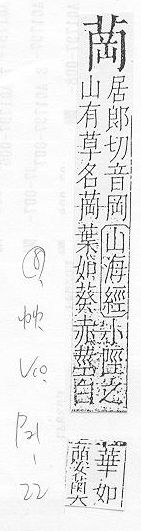 茼
居郎切音岡山海經小陘之
山有草名茼葉如葵赤莖白
華如
⑧
帙
V10
P21
22